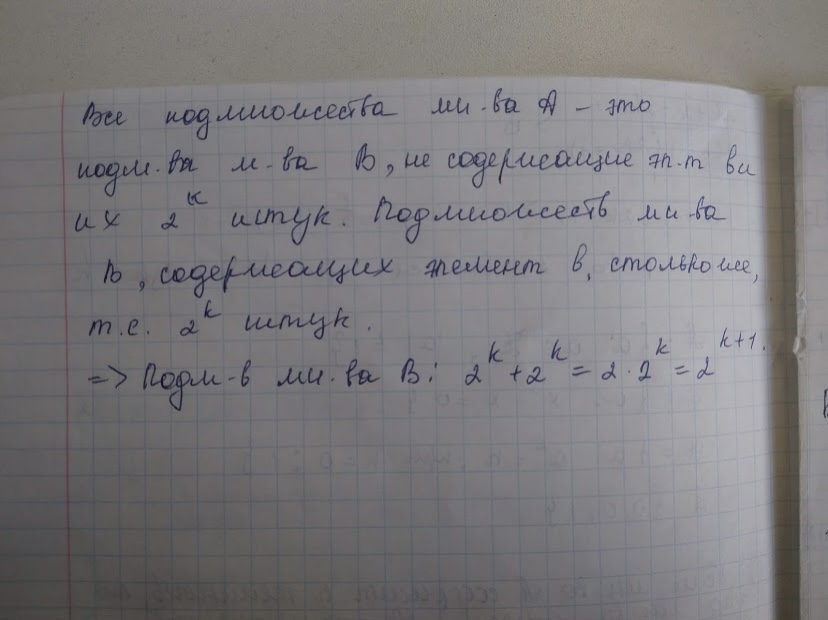 Все подмножества мн-ва A – это
подм-ва м-ва B, не содержащие эл-т в и
их 2^k штук. Подмножеств мн-ва
B, содержащих элемент в, столько же,
т.е. 2^k штук.
=> Подм-в мн-ва B: 2^k + 2^k = 2 · 2^k = 2^{k+1}.